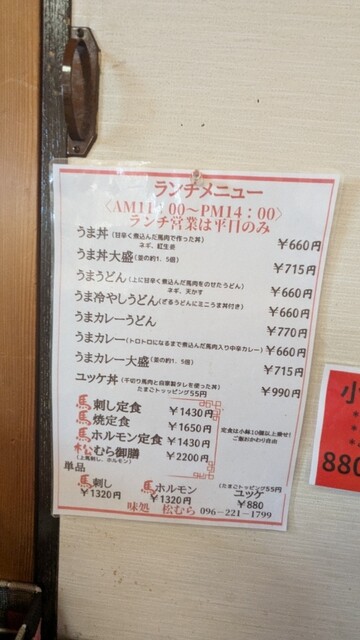 ランチメニュー
〈AM11:00〜PM14:00〉
ランチ営業は平日のみ
うま丼 (甘辛く煮込んだ馬肉で作った丼) ¥660円
ネギ、紅生姜
うま丼大盛 (並の約1.5倍) ¥715円
うまうどん (上に甘辛く煮込んだ馬肉をのせたうどん) ¥660円
ネギ、天かす
うま冷やしうどん (ざるうどんにミニうま丼付き) ¥660円
うまカレーうどん ¥770円
うまカレー (トロトロになるまで煮込んだ馬肉入り中辛カレー) ¥660円
うまカレー大盛 (並の約1.5倍) ¥715円
ユッケ丼 (千切り馬肉と自家製タレを使った丼) ¥990円
たまごトッピング55円
馬刺し定食 ¥1430円
馬焼定食 ¥1650円
馬ホルモン定食 ¥1430円
松むら御膳 ¥2200円
(上馬刺し、ホルモン)
定食は小鉢10種以上乗せ!
ご飯おかわり自由
単品
馬刺し ¥1320円
馬ホルモン ¥1320円
(たまごトッピング55円)
ユッケ ¥880
味処 松むら 096-221-1799
小
880